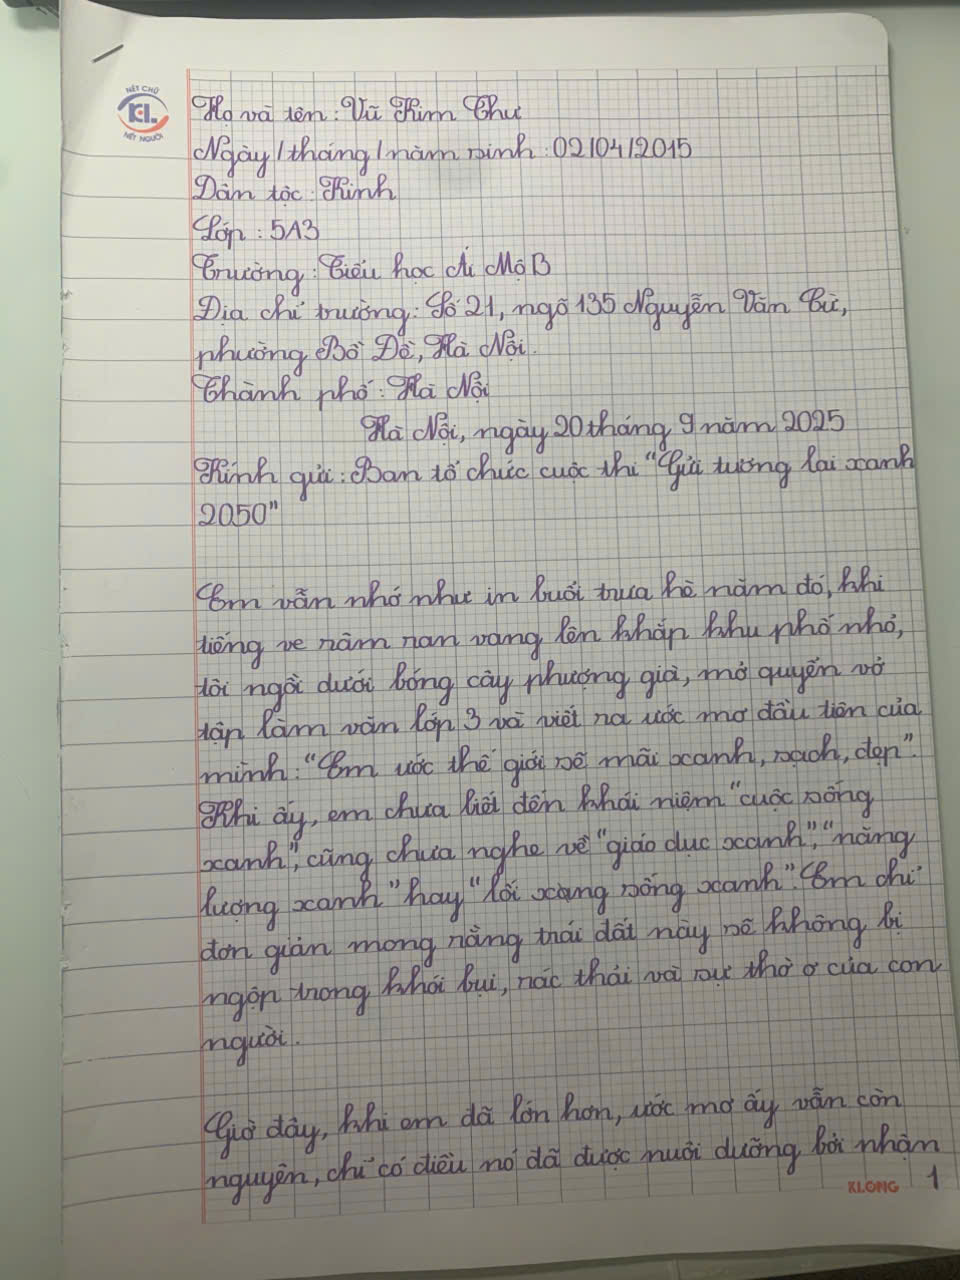 NÉT CHỮ
KL
NẾT NGƯỜI
Họ và tên: Vũ Kim Thư
Ngày/tháng/năm sinh: 02/04/2015
Dân tộc: Kinh
Lớp: 5A3
Trường: Tiểu học Ái Mộ B
Địa chỉ trường: Số 21, ngõ 135 Nguyễn Văn Cừ,
phường Bồ Đề, Hà Nội.
Thành phố: Hà Nội
Hà Nội, ngày 20 tháng 9 năm 2025
Kính gửi: Ban tổ chức cuộc thi "Gửi tương lai xanh
2050"
Em vẫn nhớ như in buổi trưa hè năm đó, khi
tiếng ve râm ran vang lên khắp khu phố nhỏ,
tôi ngồi dưới bóng cây phượng già, mở quyển vở
tập làm văn lớp 3 và viết ra ước mơ đầu tiên của
mình: "Em ước thế giới sẽ mãi xanh, sạch, đẹp".
Khi ấy, em chưa biết đến khái niệm "cuộc sống
xanh", cũng chưa nghe về "giáo dục xanh", "năng
lượng xanh" hay "lối xang sống xanh". Em chỉ
đơn giản mong rằng trái đất này sẽ không bị
ngộp trong khói bụi, rác thải và sự thờ ơ của con
người.
Giờ đây, khi em đã lớn hơn, ước mơ ấy vẫn còn
nguyên, chỉ có điều nó đã được nuôi dưỡng bởi nhận
KLONG 1